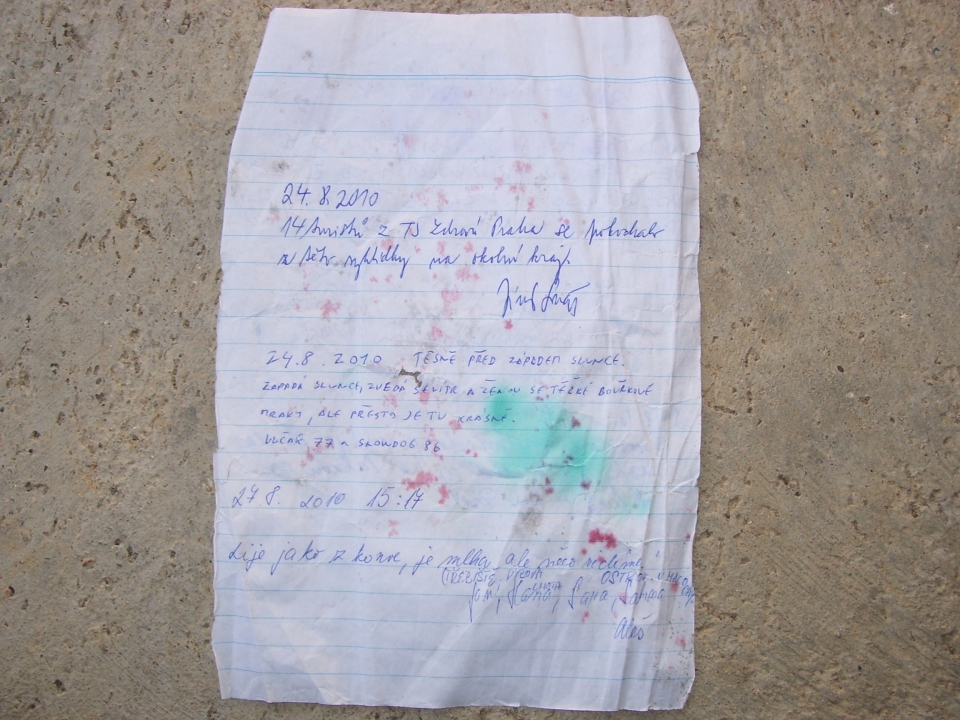 24.8.2010
14 turistů z TJ Zdraví Praha se pokochalo
z této vyhlídky na okolní kraj.
24.8.2010 TĚSNĚ PŘED ZÁPADEM SLUNCE.
ZAPADÁ SLUNCE, ZVEDÁ SE VÍTR A ŽENOU SE TĚŽKÉ BOUŘKOVÉ
MRAKY, ALE PŘESTO JE TU KRÁSNĚ.
VLČÁK 77 A SNOWDOG 86
27 8. 2010 15:17
Lije jako z konve, je mlha, ale něco vidíme!
Jana
Aleš